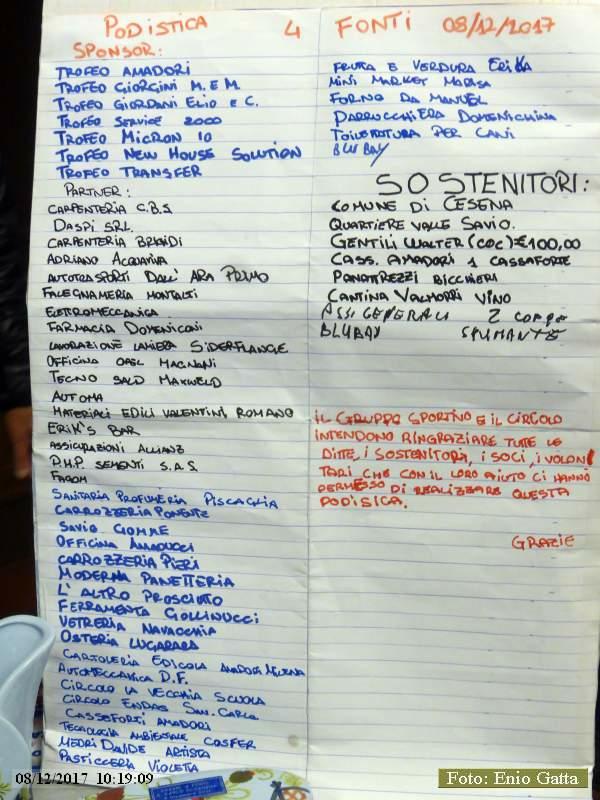 PODISTICA 4 FONTI 08/12/2017
SPONSOR:
TROFEO AMADORI
TROFEO GIORGINI M. E M.
TROFEO GIORDANI ELIO E C.
TROFEO SERVICE 2000
TROFEO MICRON 10
TROFEO NEW HOUSE SOLUTION
TROFEO TRANSFER
PARTNER:
CARPENTERIA C.B.S
DASPI SRL.
CARPENTERIA BRIGIDI
ADRIANO ACQUAVIVA
AUTOTRASPORTI DALL'ARA PRIMO
FALEGNAMERIA MONTALTI
ELETTROMECCANICA
FARMACIA DOMENICONI
LAVORAZIONE LAMIERA SIDERFLANGIE
OFFICINA OPEL MAGNANI
TECNO SALD MAXWELD
AUTOMA
MATERIALI EDILI VALENTINI ROMANO
ERIK'S BAR
ASSICURAZIONI ALLIANZ
P.H.P. SEMENTI S.A.S.
SANITARIA PROFUMERIA PISCAGLIA
CARROZZERIA PONENTE
SAVIO GOMME
OFFICINA AMADUCCI
CARROZZERIA PIERI
MODERNA PANETTERIA
L'ALTRO PROSCIUTO
FERRAMENTA GOLLINUCCI
VETRERIA NAVACCHIA
OSTERIA LUGARARA
CARTOLERIA EDICOLA AMADORI MILENA
AUTOMECCANICA D.F.
CIRCOLO LA VECCHIA SCUOLA
CIRCOLO ENDAS SAN CARLO
CASSEFORTI AMADORI
TECNOLOGIA AMBIENTALE COSFER
MEDRI DAVIDE ARTISTA
PASTICCERIA VIOLETTA
FRUTTA E VERDURA ERIKA
MINI MARKET MARISA
FORNO DA MANUEL
PARRUCCHIERA DOMENICHINA
TOILETTATURA PER CANI
BLUBAY
SOSTENITORI:
COMUNE DI CESENA
QUARTIERE VALLE SAVIO.
GENTILI WALTER (COC) €100,00
CASS. AMADORI 1 CASSAFORTE
PANATTREZZI BICCHIERI
CANTINA VALMORRI VINO
ASSI GENERALI 2 COPPE
BLUBAY SPUMANTE
IL GRUPPO SPORTIVO E IL CIRCOLO
INTENDONO RINGRAZIARE TUTTE LE
DITTE, I SOSTENITORI, I SOCI, I VOLON
TARI CHE CON IL LORO AIUTO CI HANNO
PERMESSO DI REALIZZARE QUESTA
PODISICA.
GRAZIE
08/12/2017 10:19:09
Foto: Enio Gatta